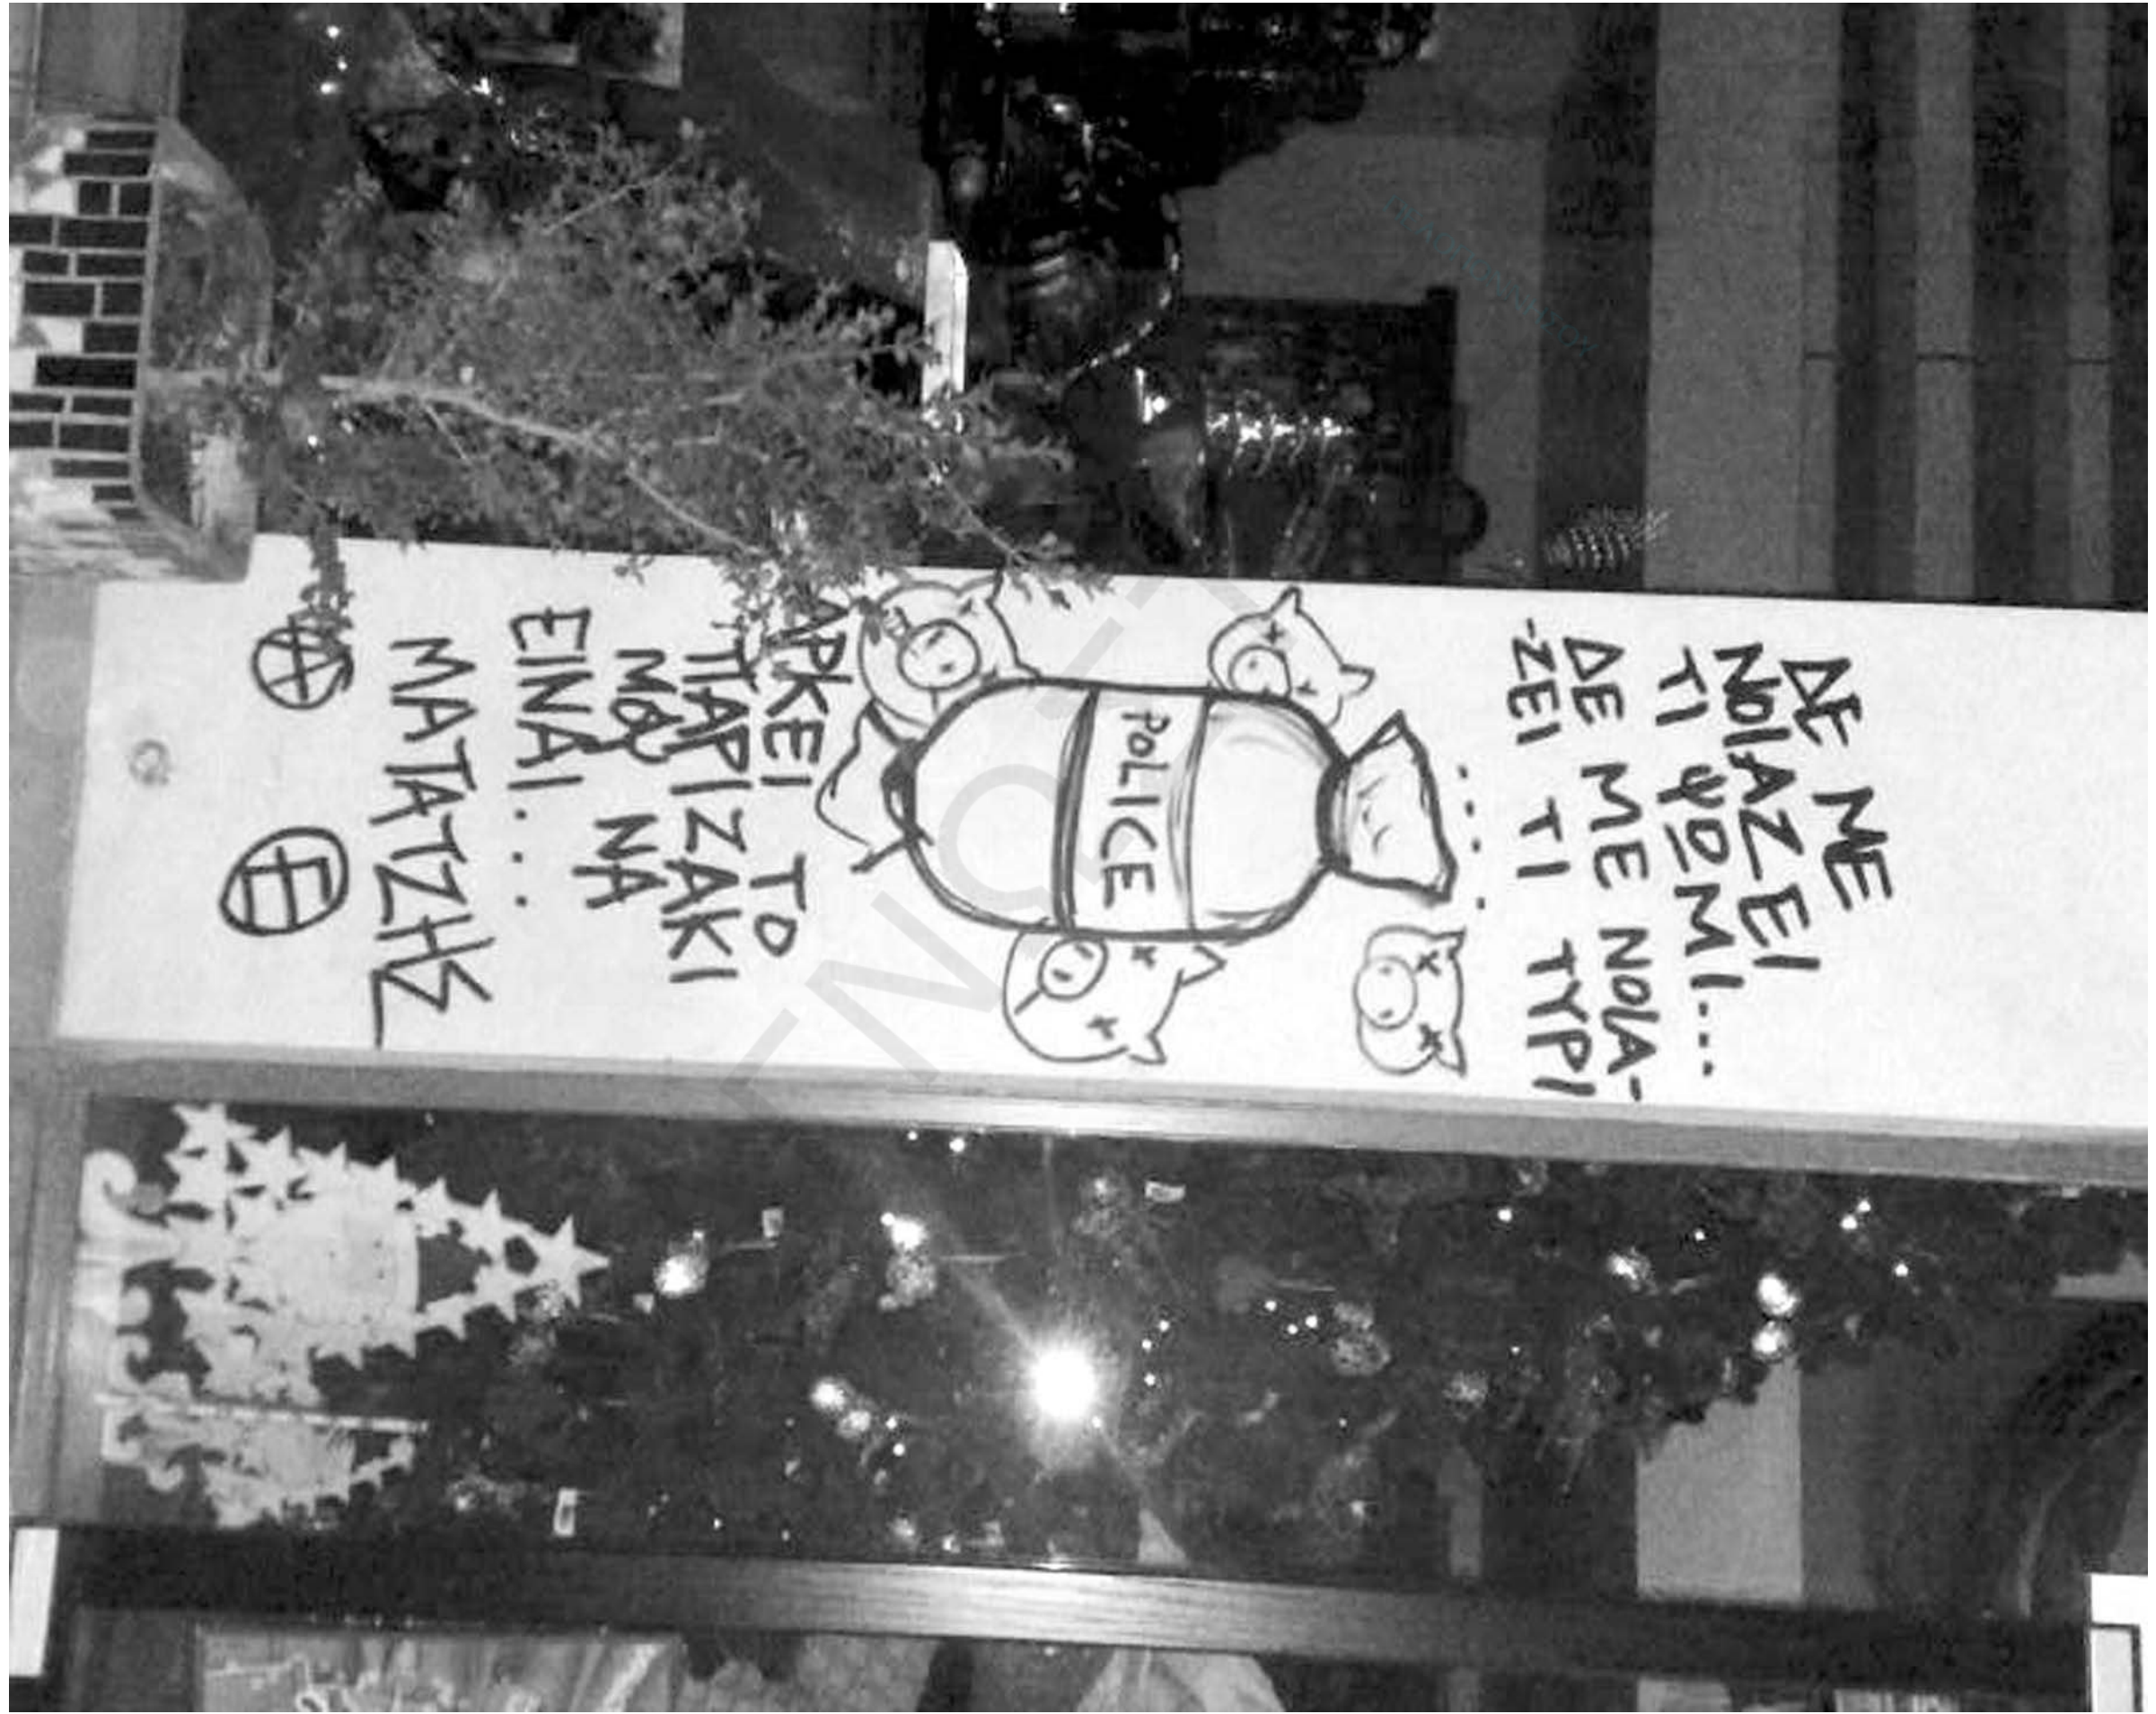 ΔΕ ΜΕ
ΝΟΙΑΖΕΙ
ΤΙ ΨΩΜΙ...
ΔΕ ΜΕ ΝΟΙΑ-
-ΖΕΙ ΤΙ ΤΥΡΙ
.....
POLICE
ΑΡΚΕΙ ΤΟ
ΠΑΡΙΖΑΚΙ
ΜΟΥ ΝΑ
ΕΙΝΑΙ....
ΜΑΤΑΤΖΗΣ
Ⓐ Ⓔ